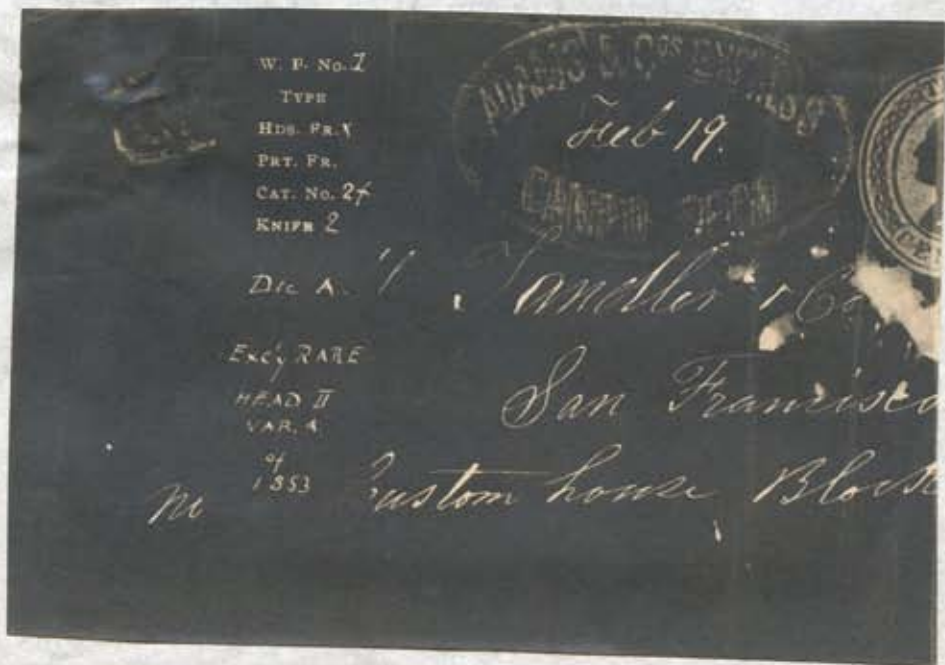 W. F. No. 1
TYPE
HDS. FR. x
PRT. FR.
CAT. No. 2+
KNIFE 2
Die A.
Exc'y RARE
HEAD II
VAR. 4
of
1853
ADAMS & Cos EXPRESS
Feb 19.
& Co
San Francisco
Custom house Block